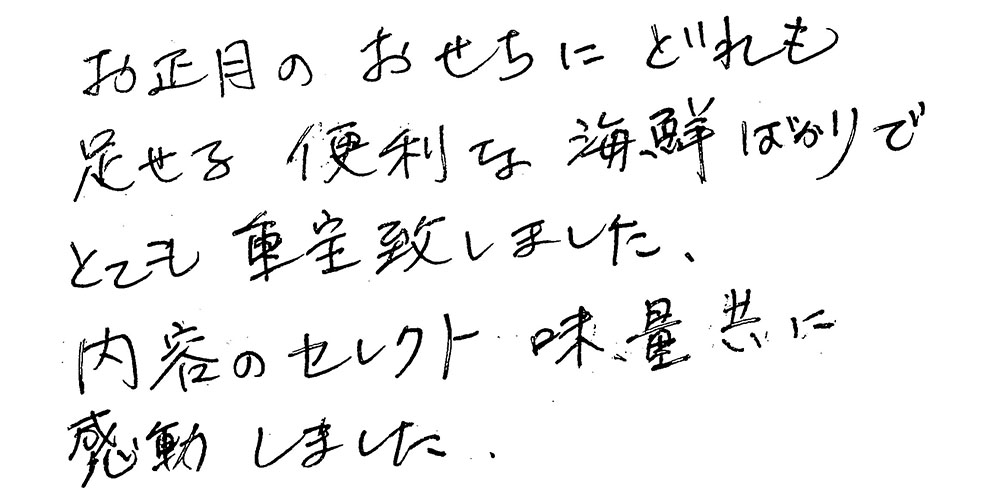 お正月の おせちに どれも
足せる 便利な 海鮮ばかりで
とても 重宝致しました、
内容のセレクト 味、量 共に
感動 しました.